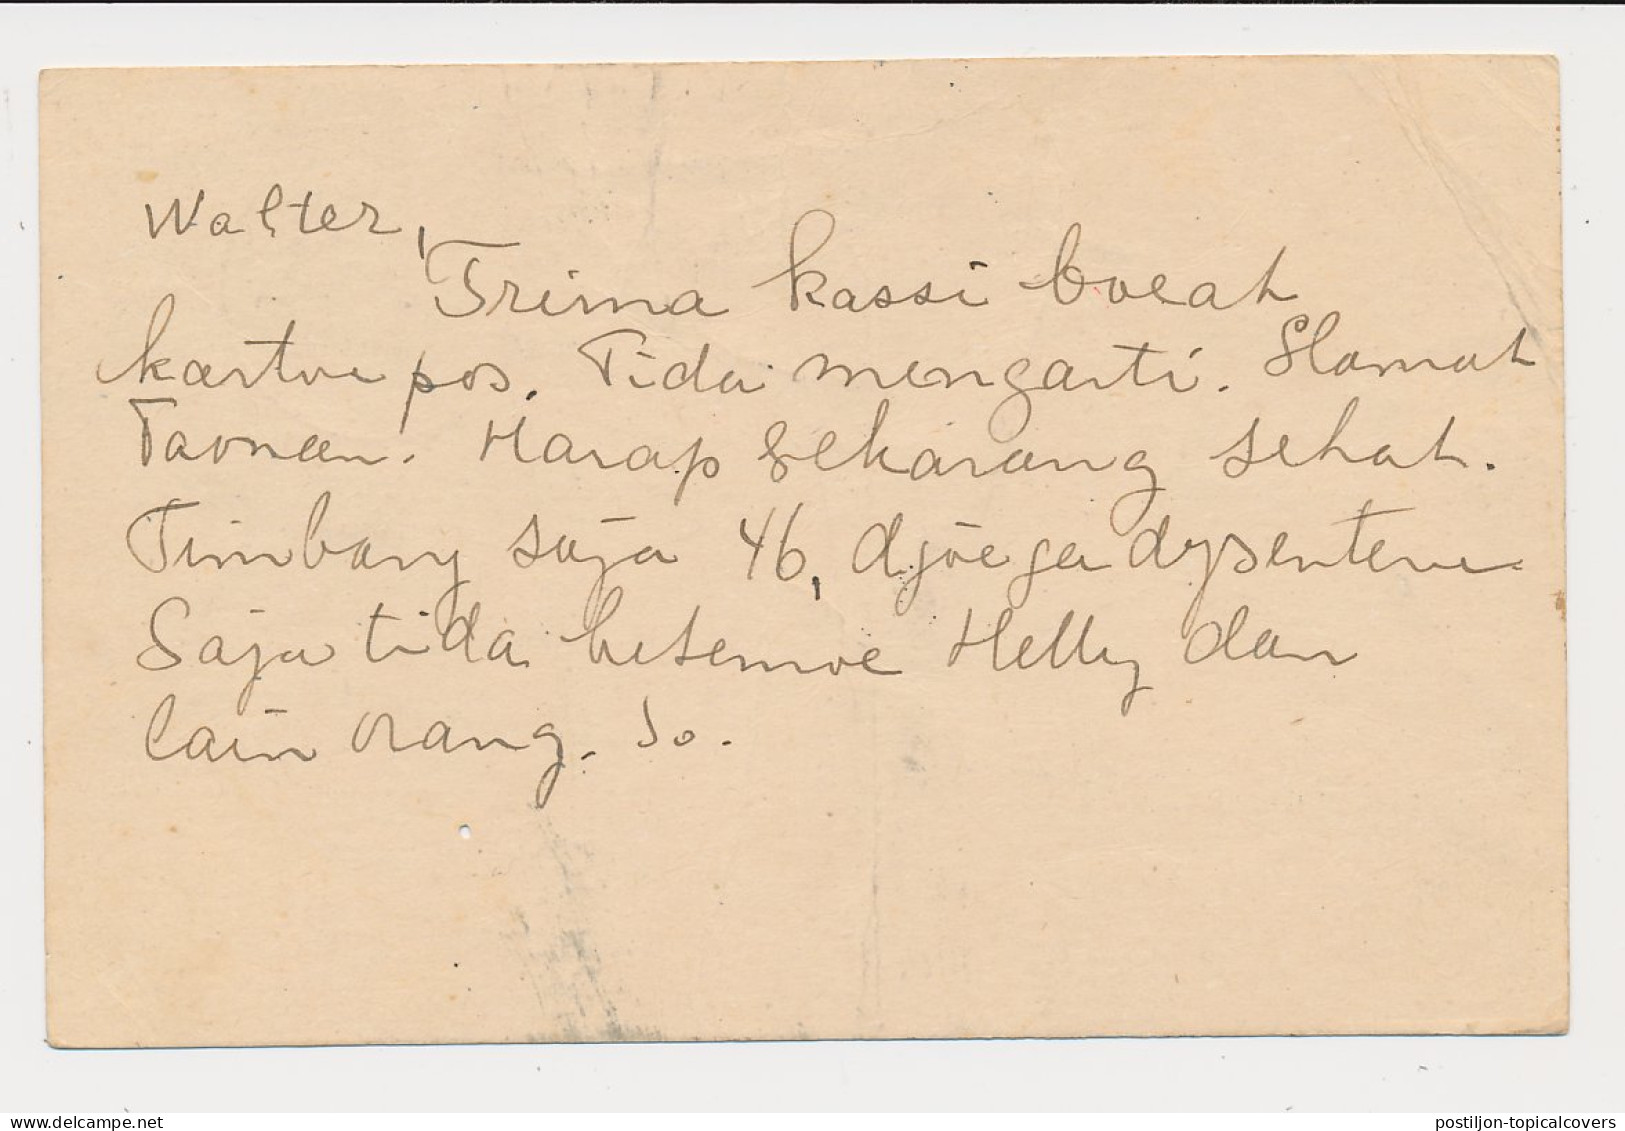 Walter,
Trima kassi boeat
kartoe pos. Tida mengarti. Slamat
Taonan. Harap sekarang sehat.
Timbang saja 46, djoega dysenterie.
Saja tida ketemoe Helly dan
lain orang. Jo.
postiljon-topicalcovers